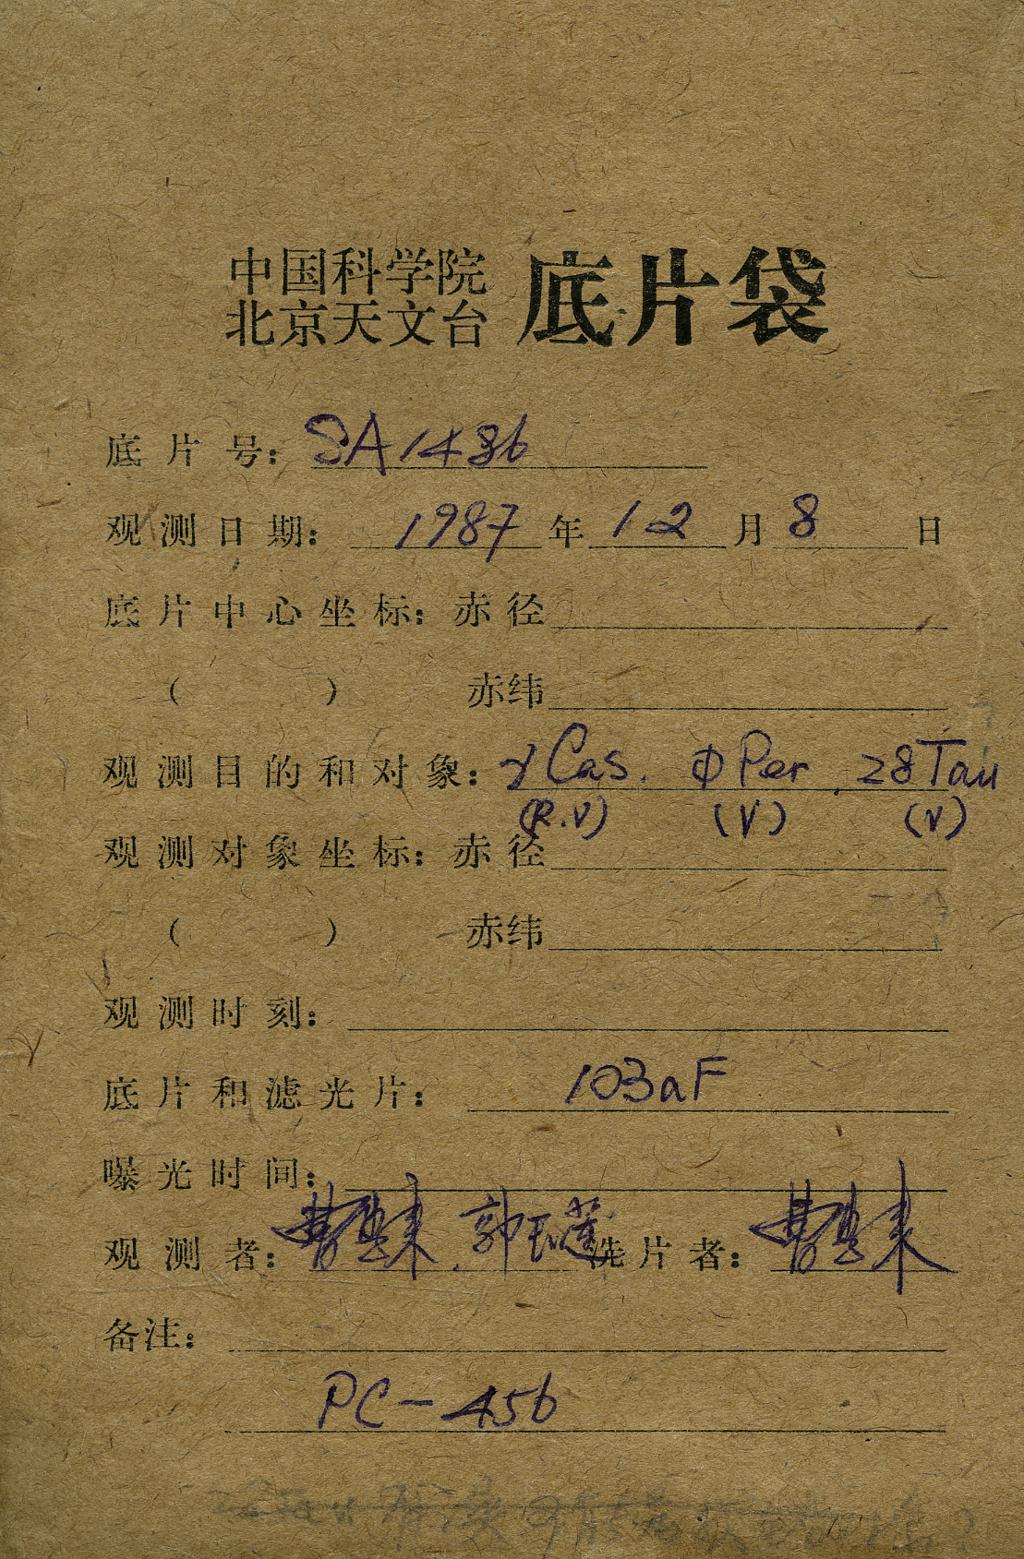 中国科学院
北京天文台 底片袋
底片号：SA1486
观测日期：1987年12月8日
底片中心坐标：赤径
（ ） 赤纬
观测目的和对象：γ Cas. φ Per. 28 Tau
(R.V) (V) (V)
观测对象坐标：赤径
（ ） 赤纬
观测时刻：
底片和滤光片：103aF
曝光时间：
观测者：曹惠来. 郭玉莲 洗片者：曹惠来
备注：
PC-456